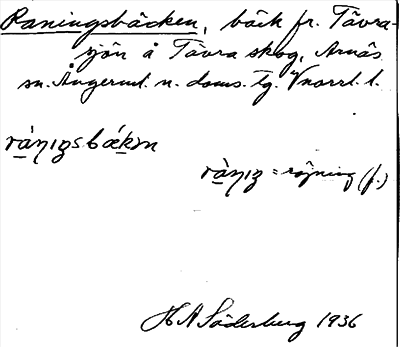 Raningsbäcken, bäck fr. Tävra-
sjön å Tävra skog, Arnäs
sn. Ångerml. n. doms. tg. Vnorrl. l.
rànıŋsbǽkən
rànıŋ = röjning (f.)
H A Söderburg 1936